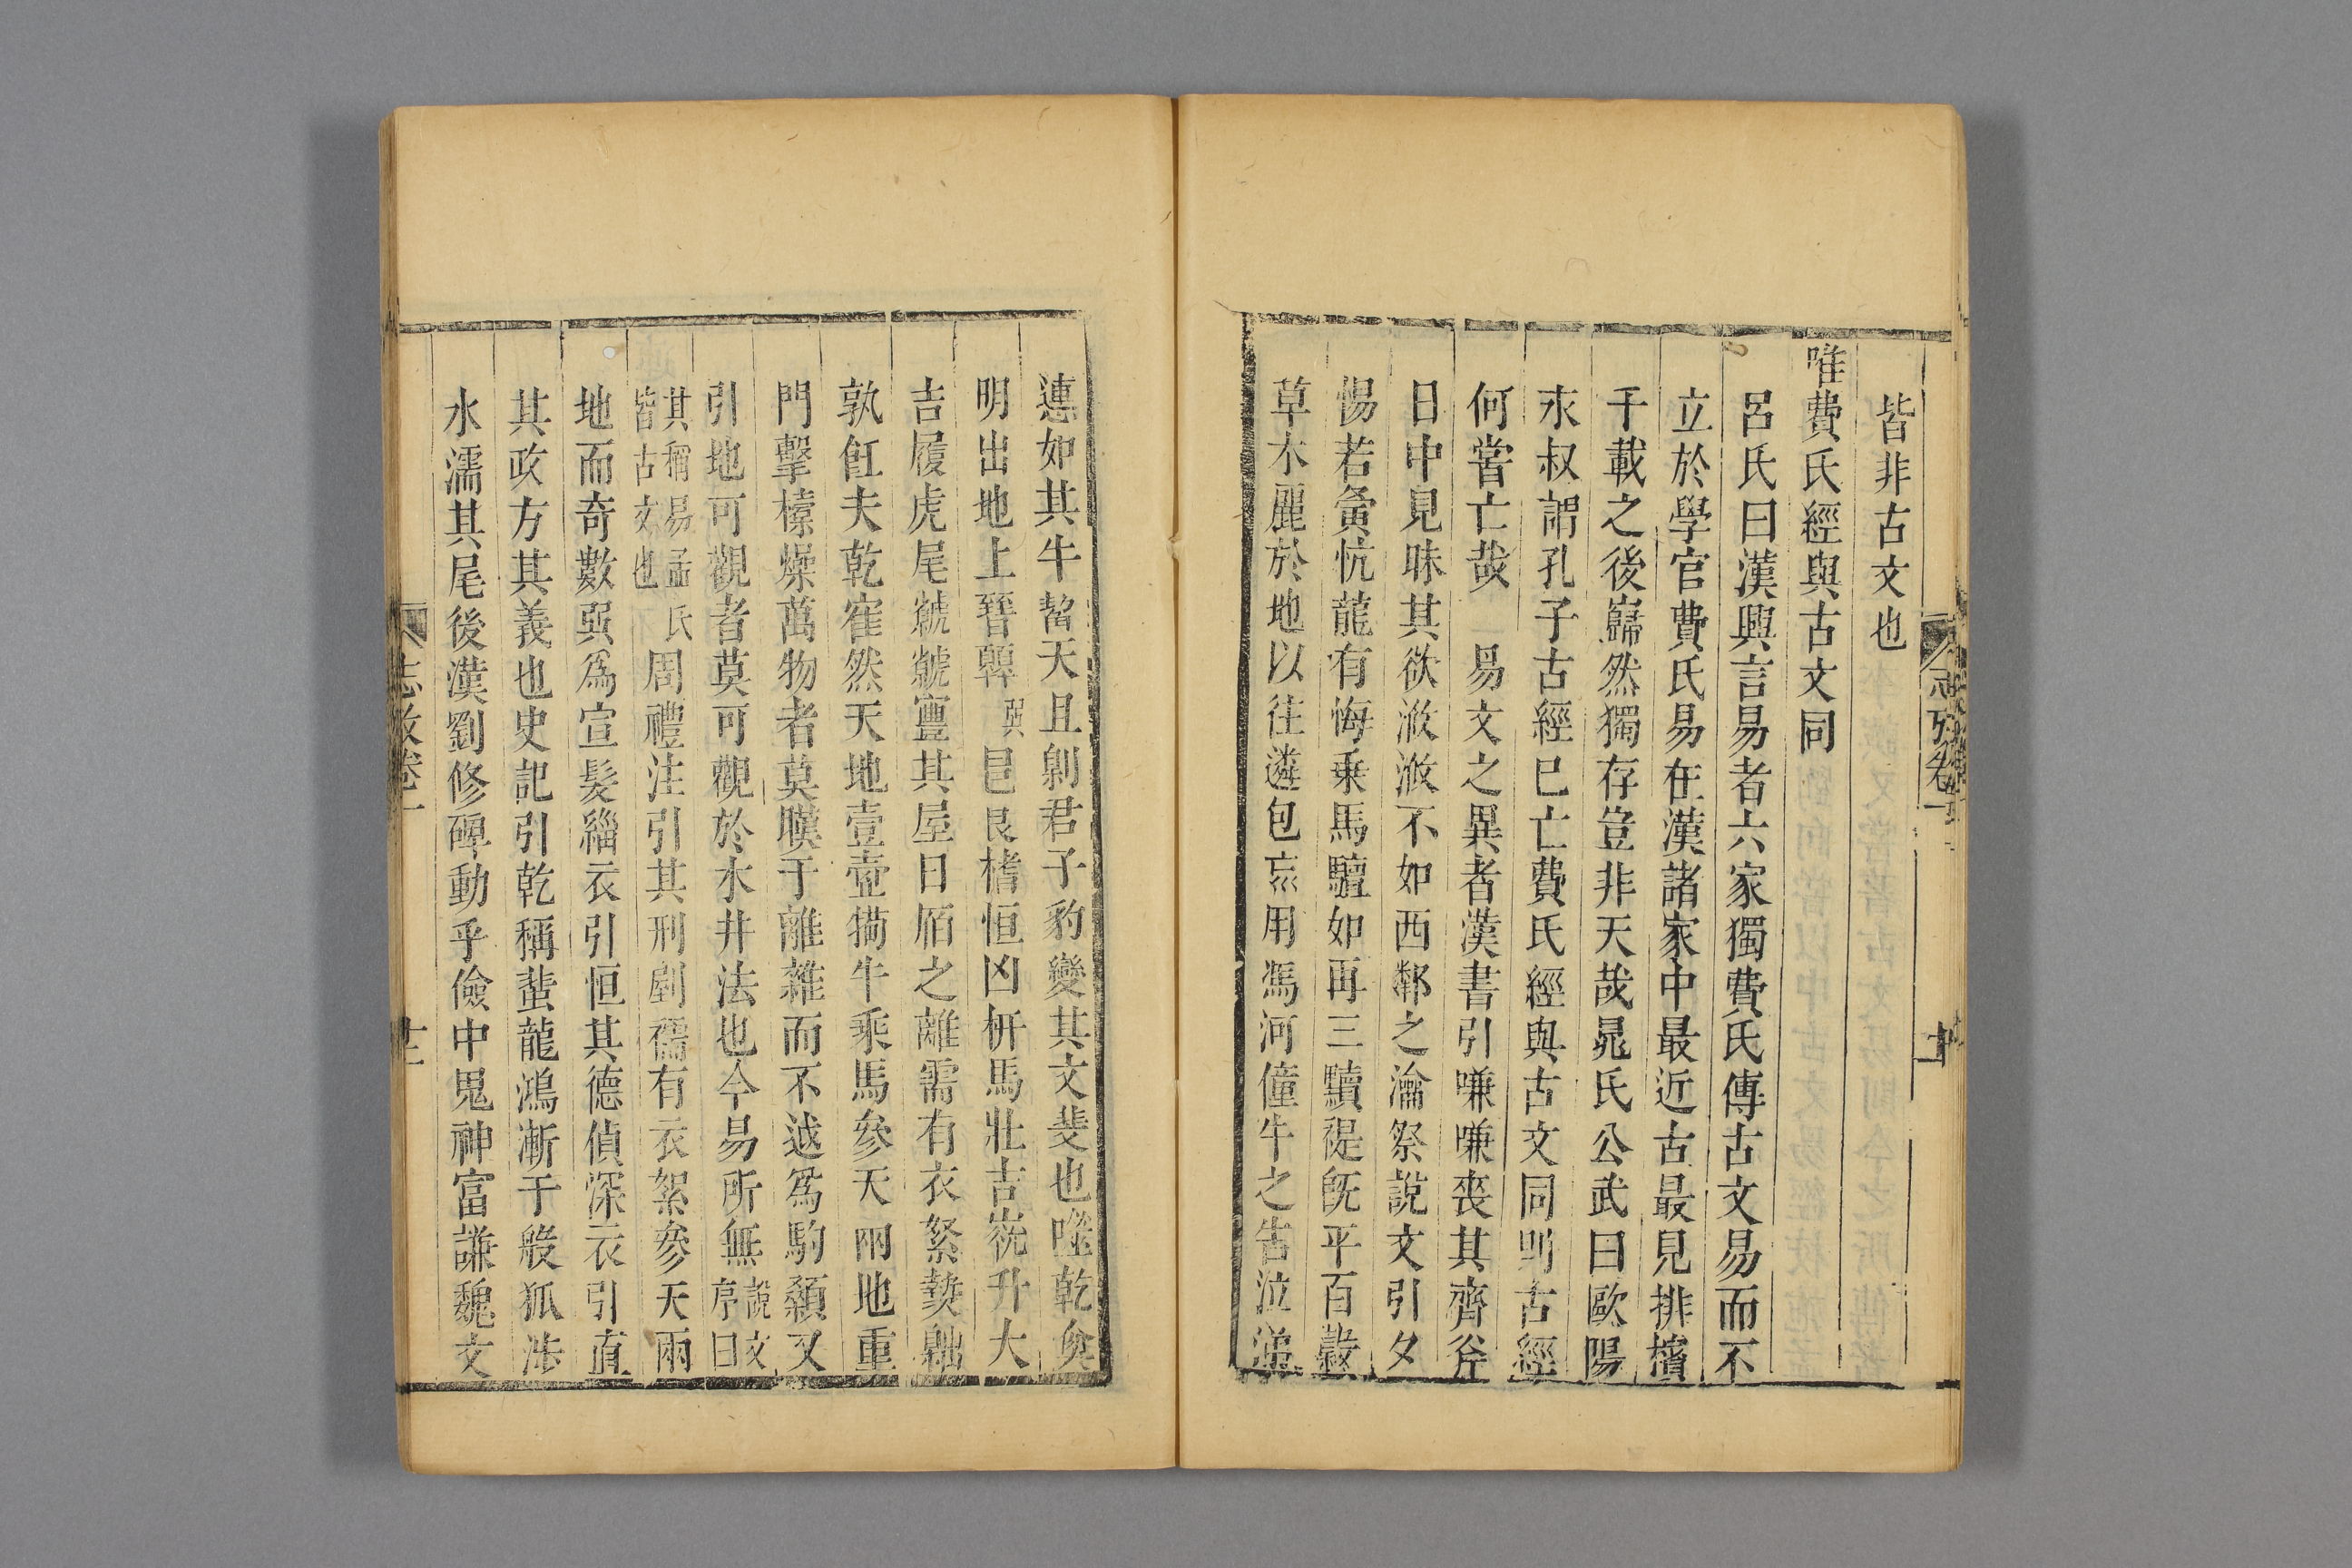 皆非古文也
唯費氏經與古文同
呂氏曰漢興言易者六家獨費氏傳古文易而不
立於學官費氏易在漢諸家中最近古最見排擯
千載之後巋然獨存豈非天哉晁氏公武曰歐陽
永叔謂孔子古經已亡費氏經與古文同則古經
何嘗亡哉 易文之異者漢書引嗛嗛喪其齊斧
日中見昧其欲浟浟不如西鄰之瀹祭說文引夕
惕若夤忼龍有悔乗馬驙如再三黷禔旣平百穀
草木麗於地以往遴包巟用馮河僮牛之告泣涕
漣如其牛觢天且劓君子豹變其文斐也噬乾𦞤
明出地上晉𩏑巽㠱艮榰恒凶拼馬壯吉㝃升大
吉履虎尾虩虩寷其屋日𢈈之離需有衣絮𡙕𪓿
孰飪夫乾寉然天地壹壺犕牛乘馬參天兩地重
門擊㯓燥萬物者莫暵于離雜而不㳚爲駒顙又
引地可觀者莫可觀於木井法也今易所無說文序曰
其稱易孟氏皆古文也周禮注引其刑剭襦有衣絮參天兩
地而奇數巽爲宣髮緇衣引恒其德偵深衣引直
其政方其義也史記引乾稱蜚龍鴻漸于般狐涉
水濡其尾後漢劉修碑動乎儉中鬼神富謙魏文
志攷卷一
十一